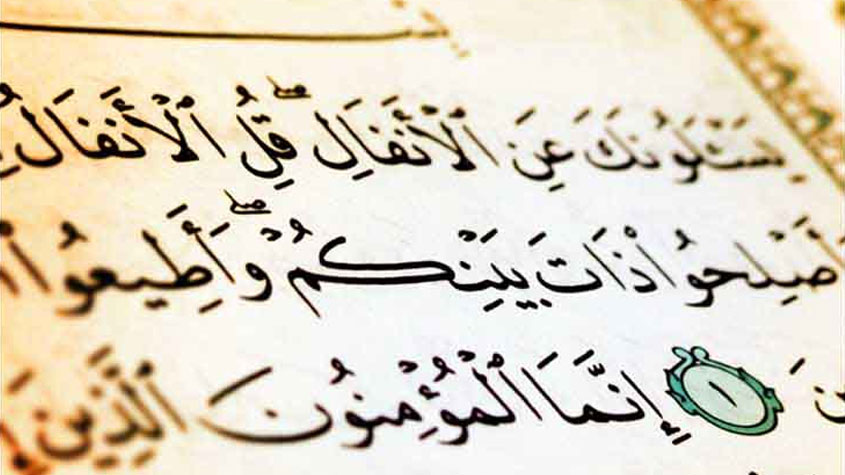 يَسْـَٔلُونَكَ عَنِ ٱلْأَنفَالِ ۖ قُلِ ٱلْأَنفَالُ
أَصْلِحُوا۟ ذَاتَ بَيْنِكُمْ ۖ وَأَطِيعُوا۟
١ إِنَّمَا ٱلْمُؤْمِنُونَ ٱلَّذِينَ